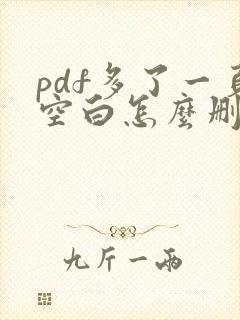 pdf多了一頁
空白怎麼刪
九斤一兩